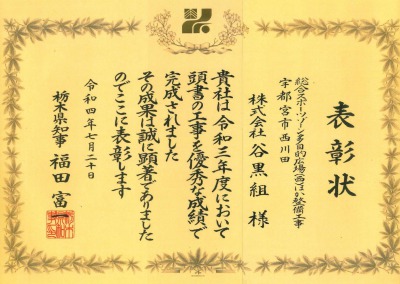 表彰状
総合スポーツゾーン多目的広場(西)ほか整備工事
宇都宮市西川田
株式会社 谷黒組 様
貴社は令和三年度において
頭書の工事を優秀な成績で
完成されました
その成果は誠に顕著でありました
のでここに表彰します
令和四年七月二十日
栃木県知事 福田富一